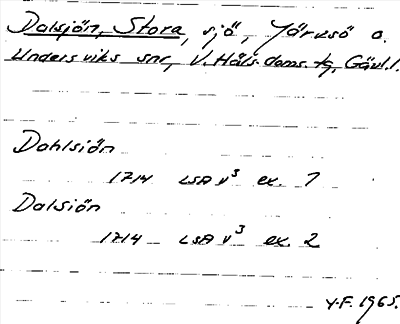 Dalsjön, Stora, sjö, Järvsö o.
Undersviks snr, V. Häls. doms. tg, Gävl. l.
Dahlsiön
1714 LSA v³ ex. 1
Dalsiön
1714 LSA v³ ex. 2
Y.F. 1965.